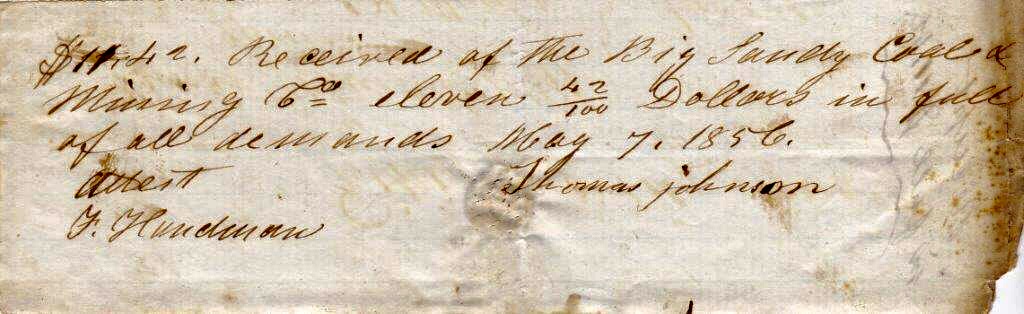 $11.42. Received of the Big Sandy Coal &
Mining Co eleven 42/100 Dollars in full
of all demands May 7. 1856.
Attest Thomas Johnson
F. Hurdman